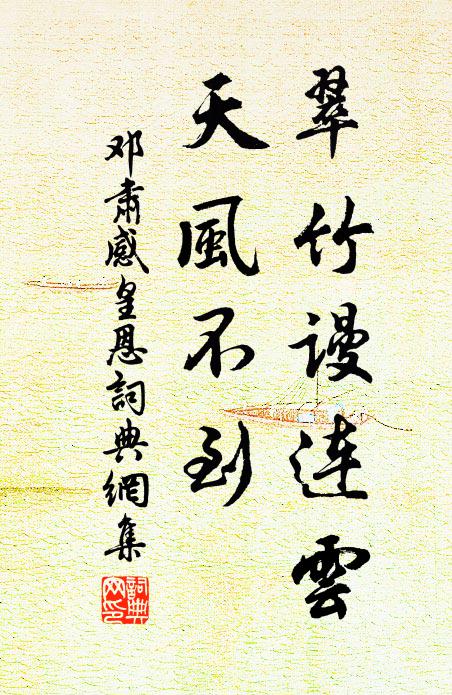 翠竹謾連雲
天風不到
邓肅感皇恩詞典網集
詞典网印